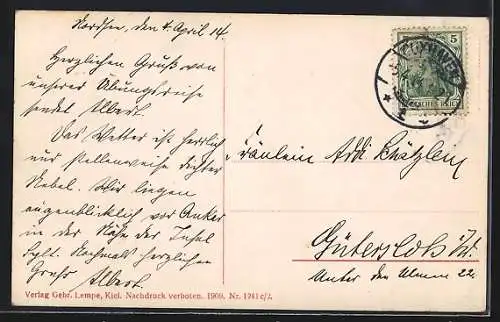 Nordsee, den 4. April 14.
Herzlichen Gruß von
unserer Übungsreise
sendet Albert.
Das Wetter ist herrlich
und stellenweise dichter
Nebel. Wir liegen
augenblicklich vor Anker
in der Nähe der Insel
Sylt. Nochmals herzlichen
Gruss Albert.
5
DEUTSCHES REICH
Fräulein Addi
Gütersloh i/W.
Unter den Ulmen 22.
Verlag Gebr. Lempe, Kiel. Nachdruck verboten. 1909. Nr. 1241 c/2.